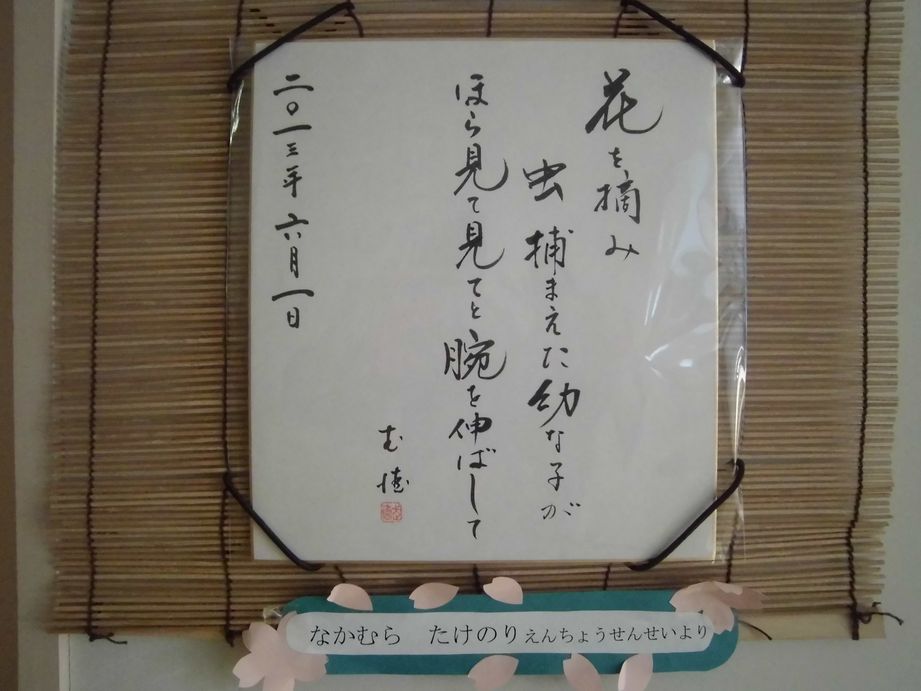 花を摘み
虫捕まえた幼な子が
ほら見て見てと腕を伸ばして
二〇一三年六月一日
なかむら たけのりえんちょうせんせいより